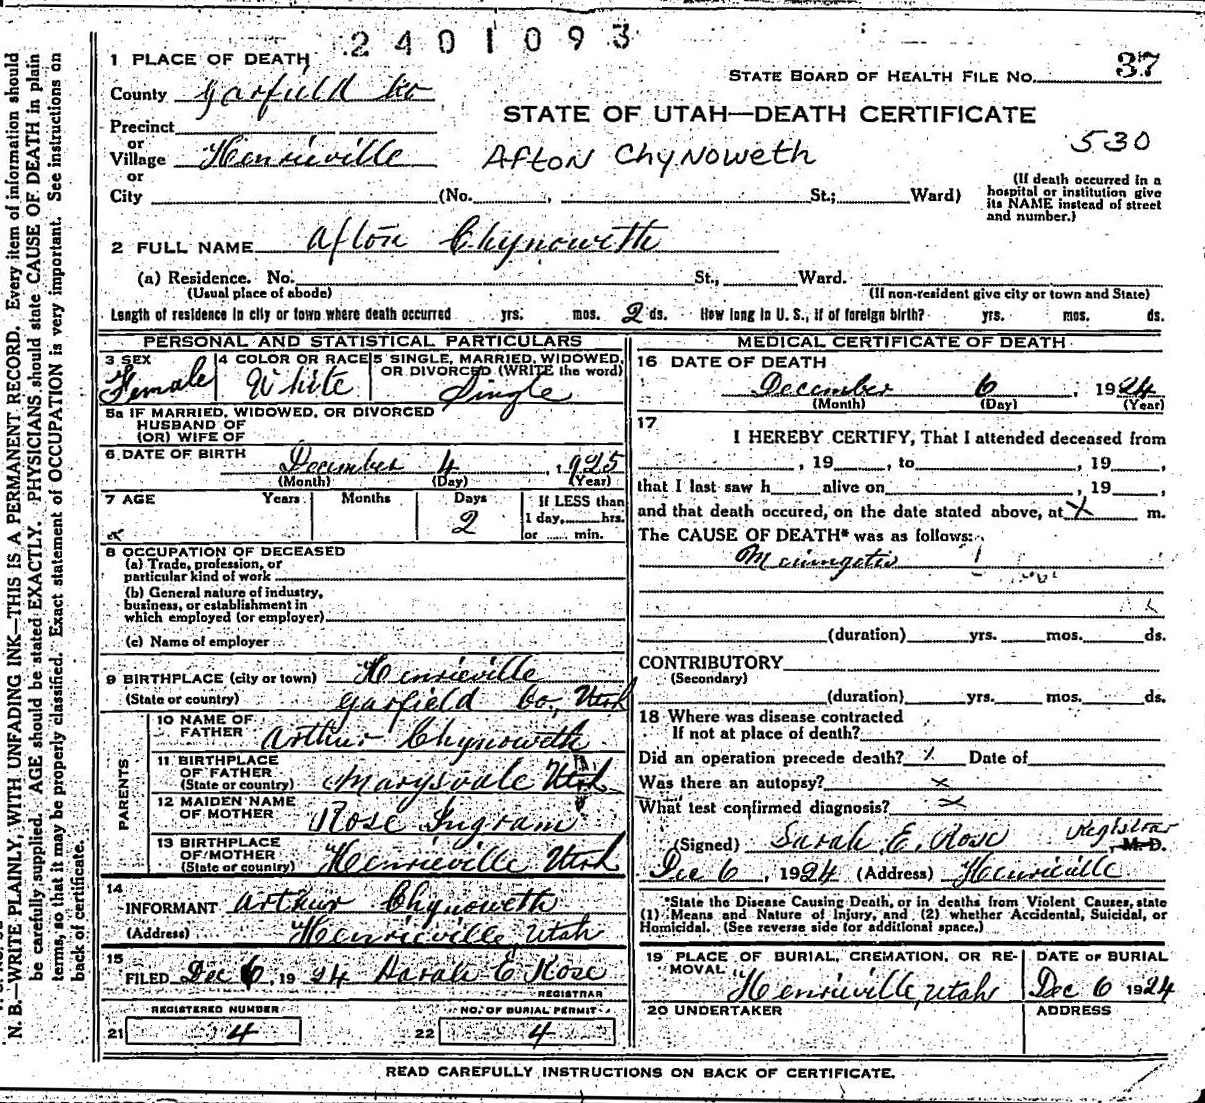 2401093
1 PLACE OF DEATH
STATE BOARD OF HEALTH FILE NO. 37
County Garfield Co
STATE OF UTAH—DEATH CERTIFICATE
Precinct
or
Village Henrieville
Afton Chynoweth
530
or
City (No. , St.; Ward)
(If death occurred in a
hospital or institution give
its NAME instead of street
and number.)
2 FULL NAME Afton Chynoweth
(a) Residence. No. St., Ward.
(Usual place of abode) (If non-resident give city or town and State)
Length of residence in city or town where death occurred yrs. mos. 2 ds. How long in U. S., if of foreign birth? yrs. mos. ds.
PERSONAL AND STATISTICAL PARTICULARS
3 SEX
Female
4 COLOR OR RACE
White
5 SINGLE, MARRIED, WIDOWED,
OR DIVORCED (WRITE the word)
Single
5a IF MARRIED, WIDOWED, OR DIVORCED
HUSBAND OF
(OR) WIFE OF
6 DATE OF BIRTH December 4, 1925
(Month) (Day) (Year)
7 AGE Years Months Days If LESS than
2 1 day, hrs.
or min.
8 OCCUPATION OF DECEASED
(a) Trade, profession, or
particular kind of work
(b) General nature of industry,
business, or establishment in
which employed (or employer)
(c) Name of employer
9 BIRTHPLACE (city or town) Henrieville
(State or country) Garfield Co., Utah
PARENTS
10 NAME OF
FATHER Arthur Chynoweth
11 BIRTHPLACE
OF FATHER
(State or country) Marysvale Utah
12 MAIDEN NAME
OF MOTHER Rose Ingram
13 BIRTHPLACE
OF MOTHER
(State or country) Henrieville Utah
14
INFORMANT Arthur Chynoweth
(Address) Henrieville, Utah
15
FILED Dec 6, 1924 Sarah E Rose
REGISTRAR
REGISTERED NUMBER NO. OF BURIAL PERMIT
21 4 22 4
MEDICAL CERTIFICATE OF DEATH
16 DATE OF DEATH
December 6, 1924
(Month) (Day) (Year)
17
I HEREBY CERTIFY, That I attended deceased from
, 19 , to , 19 ,
that I last saw h alive on , 19 ,
and that death occured, on the date stated above, at x m.
The CAUSE OF DEATH* was as follows:
(duration) yrs. mos. ds.
CONTRIBUTORY
(Secondary)
(duration) yrs. mos. ds.
18 Where was disease contracted
If not at place of death?
Did an operation precede death? x Date of
Was there an autopsy? x
What test confirmed diagnosis? x
(Signed) Sarah E. Rose Registrar M. D.
Dec 6, 1924 (Address) Henrieville
*State the Disease Causing Death, or in deaths from Violent Causes, state
(1) Means and Nature of Injury, and (2) whether Accidental, Suicidal, or
Homicidal. (See reverse side for additional space.)
19 PLACE OF BURIAL, CREMATION, OR RE-
MOVAL
Henrieville, Utah
DATE OF BURIAL
Dec 6 1924
20 UNDERTAKER ADDRESS
READ CAREFULLY INSTRUCTIONS ON BACK OF CERTIFICATE.
N. B.—WRITE PLAINLY, WITH UNFADING INK—THIS IS A PERMANENT RECORD. Every item of information should
be carefully supplied. AGE should be stated EXACTLY. PHYSICIANS should state CAUSE OF DEATH in plain
terms, so that it may be properly classified. Exact statement of OCCUPATION is very important. See instructions on
back of certificate.